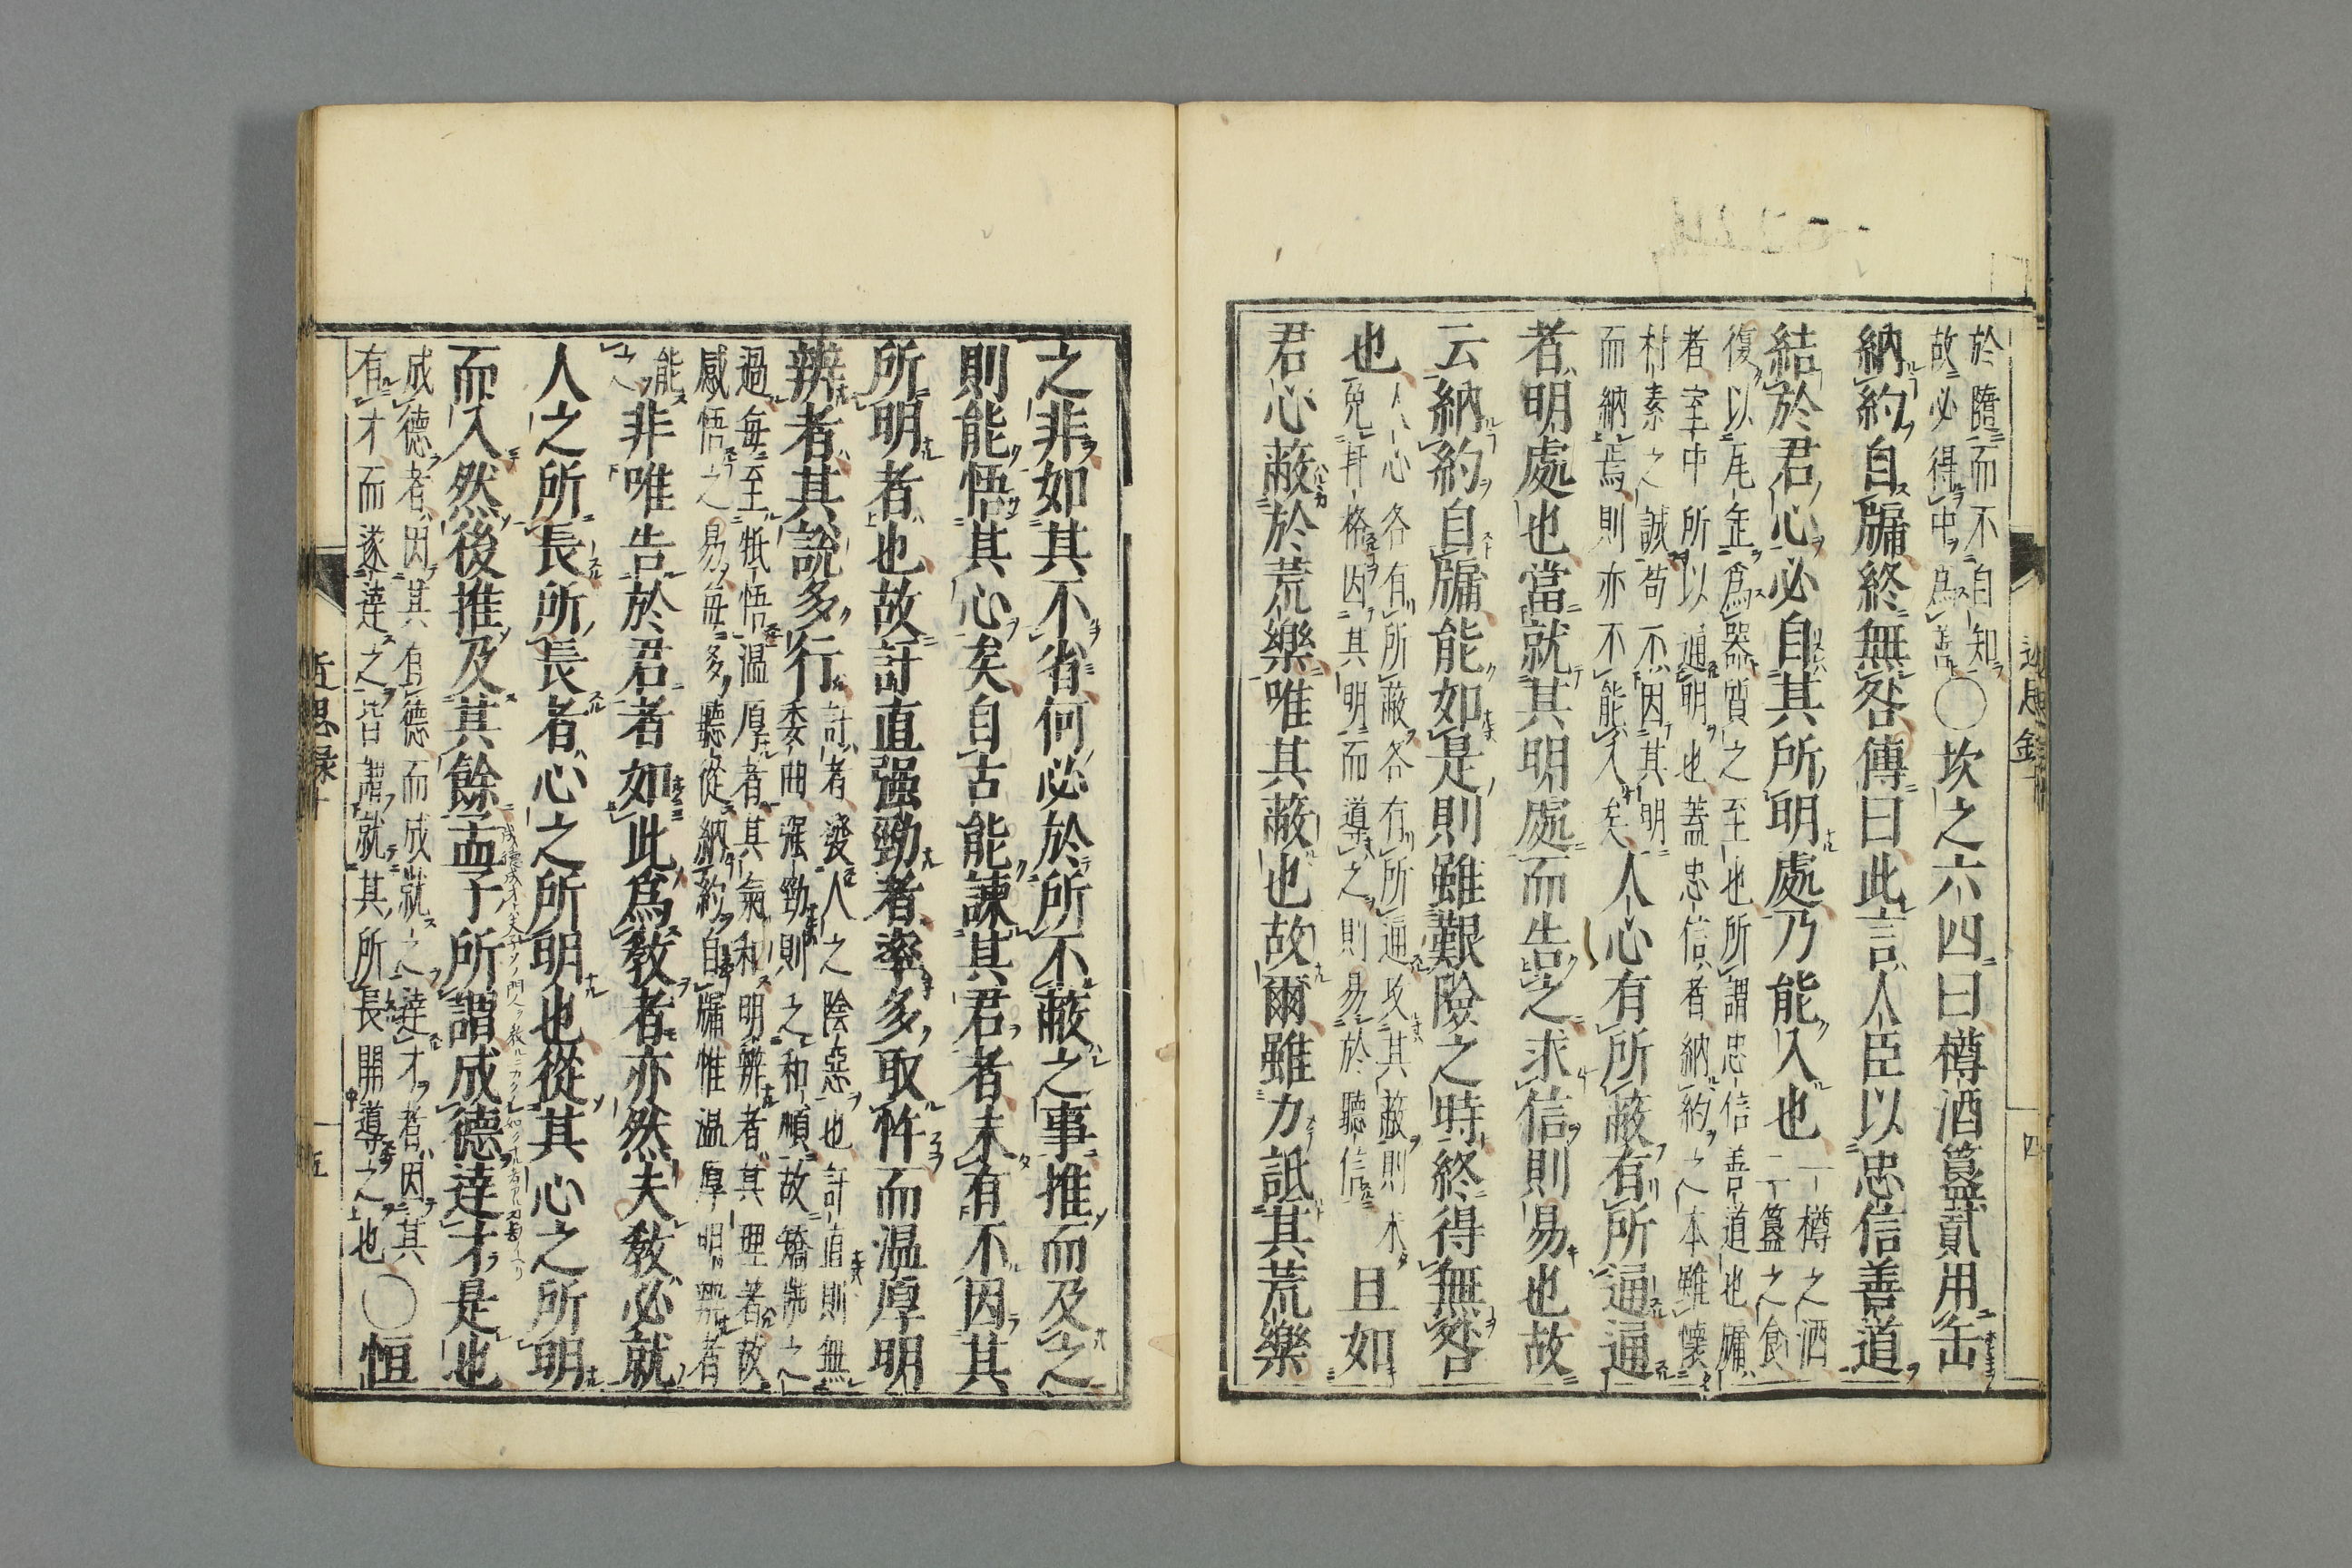 於隨而不自知
故必得中爲善
〇坎之六四曰樽酒簋貳用缶
納約自牖終無咎傳曰此言人臣以忠信善道
結於君心必自其所明處乃能入也
一樽之酒
二簋之食
復以瓦缶爲器質之至也所謂忠信善道也牖
者室中所以通明也蓋忠信者納約之本雖懷
朴素之誠苟不因其明
而納焉則亦不能入矣
人心有所蔽有所通通
者明處也當就其明處而告之求信則易也故
云納約自牖能如是則雖艱險之時終得無咎
也
人心各有所蔽各有所通攻其蔽則未
免扞格因其明而導之則易於聽信
且如
君心蔽於荒樂唯其蔽也故爾雖力詆其荒樂
近思錄
四
之非如其不省何必於所不蔽之事推而及之
則能悟其心矣自古能諫其君者未有不因其
所明者也故訐直强勁者率多取忤而温厚明
辨者其說多行
訐者發人之陰惡也訐直則無
委曲强勁則之和順故矯拂之
過每至牴牾温厚者其氣和明辨者其理著故
感悟之易每多聽從納約自牖惟温厚明辨者
能之
非唯告於君者如此爲教者亦然夫教必就
人之所長所長者心之所明也從其心之所明
而入然後推及其餘孟子所謂成德達才是也
成德者因其有德而成就之達才者因其
有才而遂達之皆謂就其所長開導之也
〇恒
近思錄
五